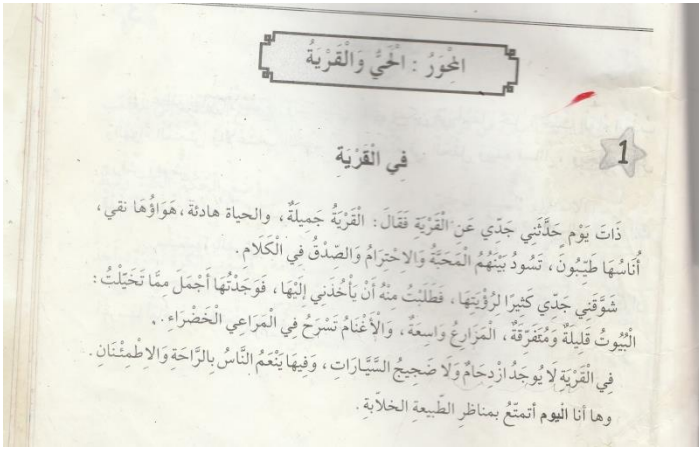 المِحْوَرُ : الْحَيُّ وَالْقَرْيَةُ
1
فِي الْقَرْيَةِ
ذَاتَ يَوْمٍ حَدَّثَنِي جَدِّي عَنِ الْقَرْيَةِ فَقَالَ: الْقَرْيَةُ جَمِيلَةٌ، والحياة هادئة، هَوَاؤُهَا نقي،
أُنَاسُهَا طَيِّبُونَ، تَسُودُ بَيْنَهُمُ الْمَحَبَّةُ وَالِاحْتِرَامُ وَالصِّدْقُ فِي الْكَلَامِ.
شَوَّقَنِي جَدِّي كَثِيرًا لِرُؤْيَتِهَا، فَطَلَبْتُ مِنْهُ أَنْ يَأْخُذَنِي إِلَيْهَا، فَوَجَدْتُهَا أَجْمَلَ مِمَّا تَخَيَّلْتُ:
الْبُيُوتُ قَلِيلَةٌ وَمُتَفَرِّقَةٌ، الْمَزَارِعُ وَاسِعَةٌ، وَالْأَغْنَامُ تَسْرَحُ فِي الْمَرَاعِي الْخَضْرَاءِ.
فِي الْقَرْيَةِ لَا يُوجَدُ ازْدِحَامٌ وَلَا ضَجِيجُ السَّيَّارَاتِ، وَفِيهَا يَنْعَمُ النَّاسُ بِالرَّاحَةِ وَالِاطْمِئْنَانِ.
وها أنا اليوم أتمتّعُ بمناظرِ الطّبيعةِ الخلاّبةِ.